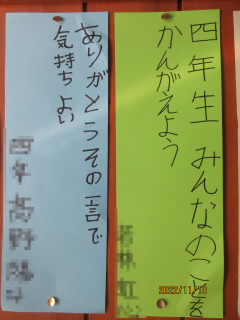 四年生 みんなのことを
かんがえよう
若林 虹
ありがとうその一言で
気持ちよい
四年 髙野 陽
2022/11/10